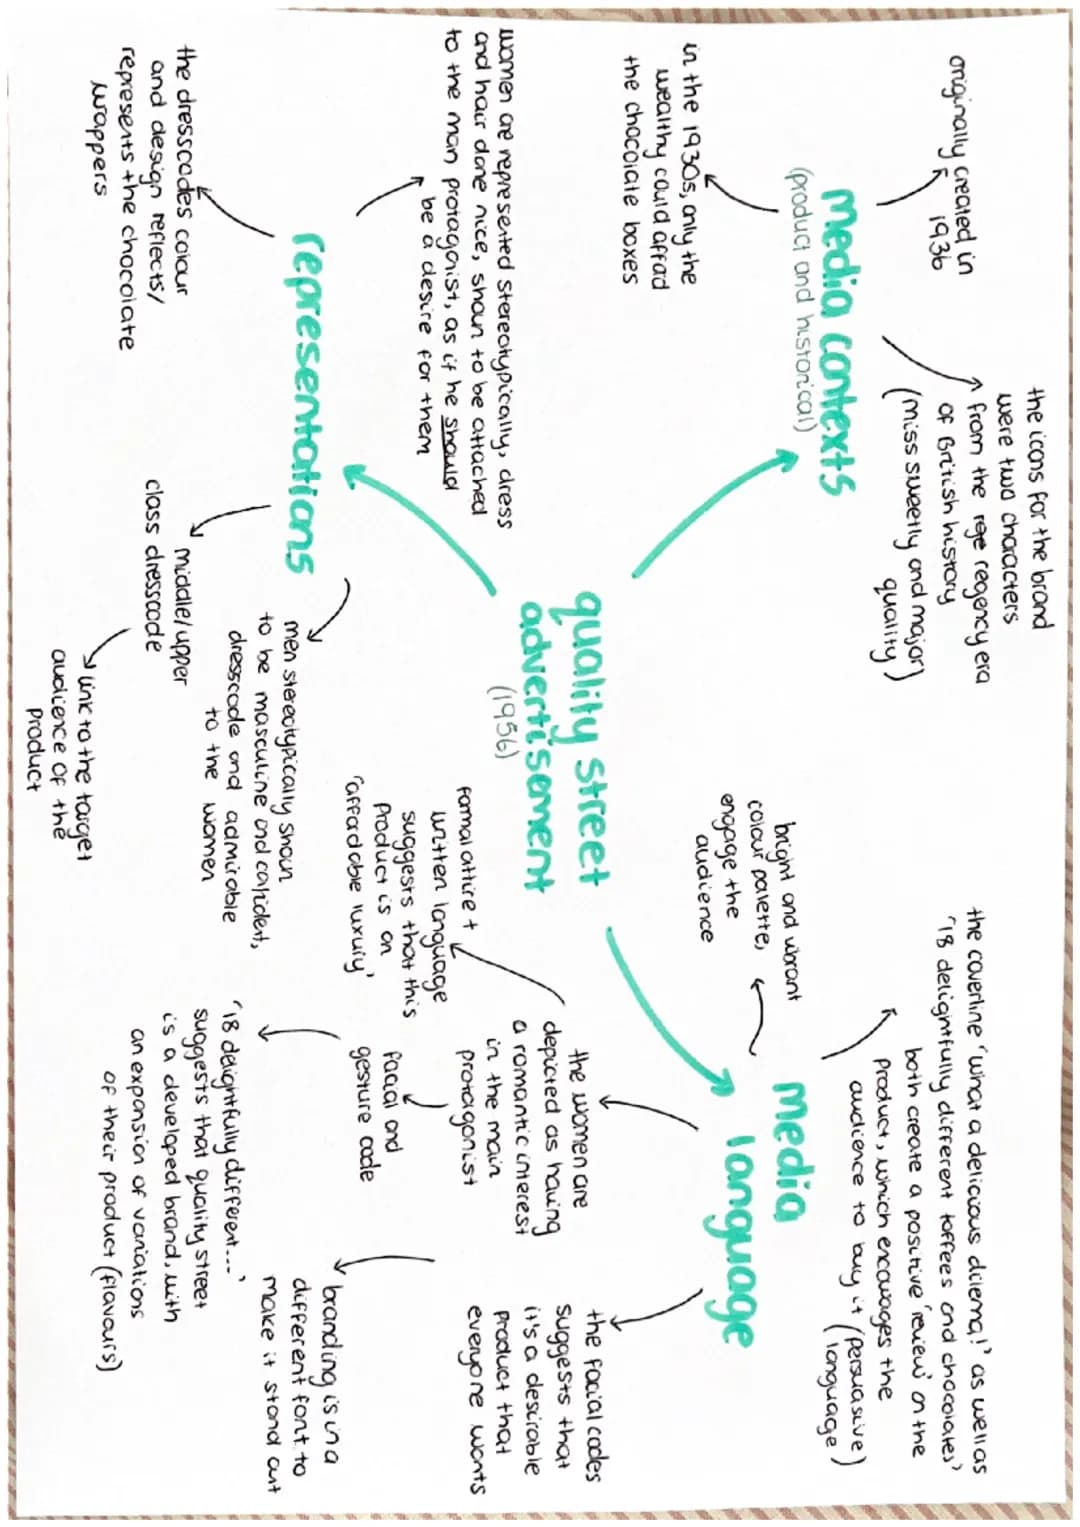 quality street
advertisement
(1956)
media contexts
(product and historical)
originally created in
1936
the icons for the brand
were two characters
from the rge regency era
of British history
(miss sweetly and major
quality)
in the 1930s, only the
wealthy could afford
the chocolate boxes
media
language
the coverline 'what a delicious dilema!' as well as
'18 delightfully different toffees and chocolates'
both create a positive 'review' on the
product, which encourages the
audience to buy it (persuasive
language)
bright and vibrant
colour palette,
engage the
audience
the women are
depicted as having
a romantic interest
in the main
protagonist
formal attire +
written language
suggests that this
product is an
'affordable luxury'
facial and
gesture code
the facial codes
suggests that
it's a desirable
product that
everyone wants
branding is in a
different font to
make it stand out
'18 delightfully different...'
suggests that quality street
is a developed brand, with
an expansion of variations
of their product (flavours)
representations
women are represented stereotypically, dress
and hair done nice, shown to be attached
to the man protagonist, as if he should
be a desire for them
the dresscodes colour
and design reflects/
represents the chocolate
wrappers
middle/upper
class dresscode
link to the target
audience of the
product
men stereotypically shown
to be masculine and confident,
dresscode and admirable
to the women